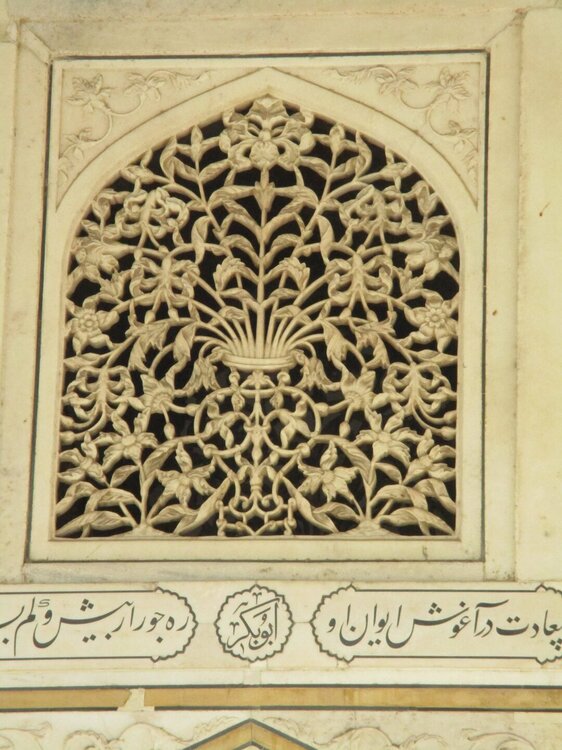 سعادت در آغوش ایوان او ابوبکر ره جور از بیش و کم